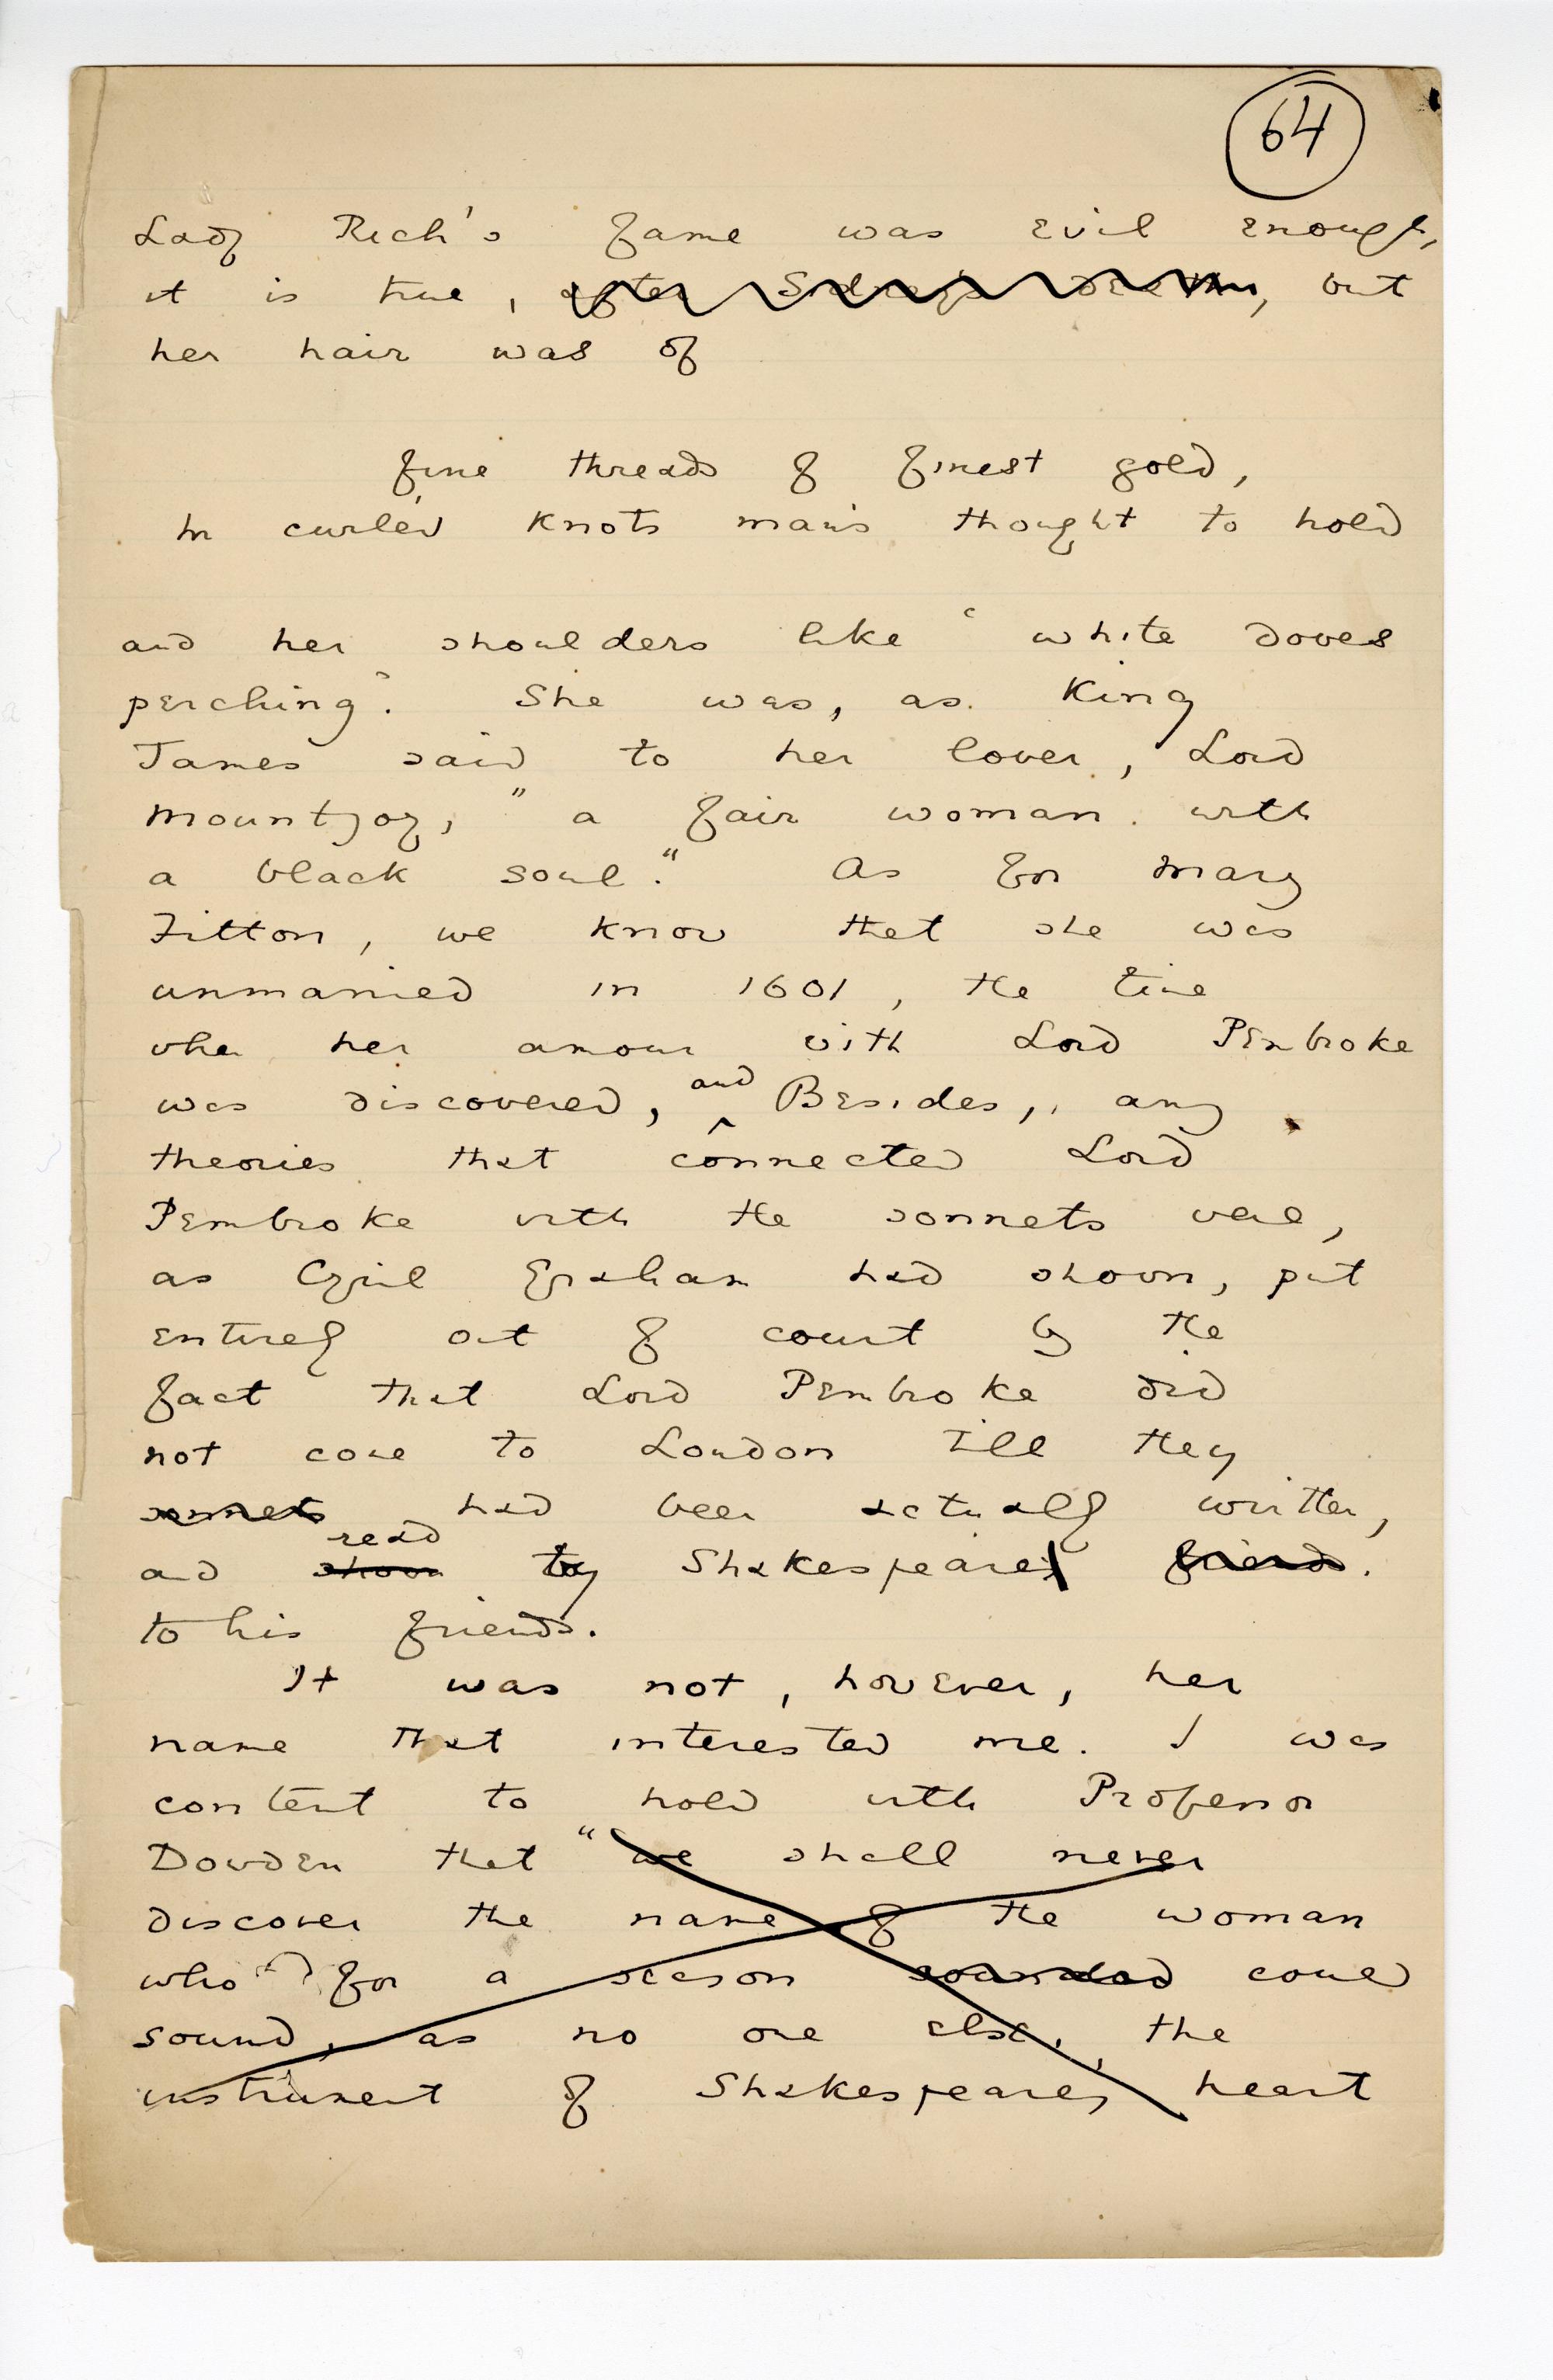 64
Lady Rich's fame was evil enough,
it is true, after Sidney's death, but
her hair was of
fine threads of finest gold,
In curlèd knots man's thought to hold
and her shoulders like 'white doves
perching'. She was, as King
James said to her lover, Lord
Mountjoy, "a fair woman with
a black soul." As for Mary
Fitton, we know that she was
unmarried in 1601, the time
when her amour with Lord Pembroke
was discovered, and Besides, any
theories that connected Lord
Pembroke with the sonnets were,
as Cyril Graham had shown, put
entirely out of court by the
fact that Lord Pembroke did
not come to London till they
sonnets had been actually written,
and shown read by Shakespeare friends.
to his friends.
It was not, however, her
name that interested me. I was
content to hold with Professor
Dowden that "we shall never
discover the name of the woman
who for a season sounded could
sound, as no one else, the
instrument of Shakespeare's heart